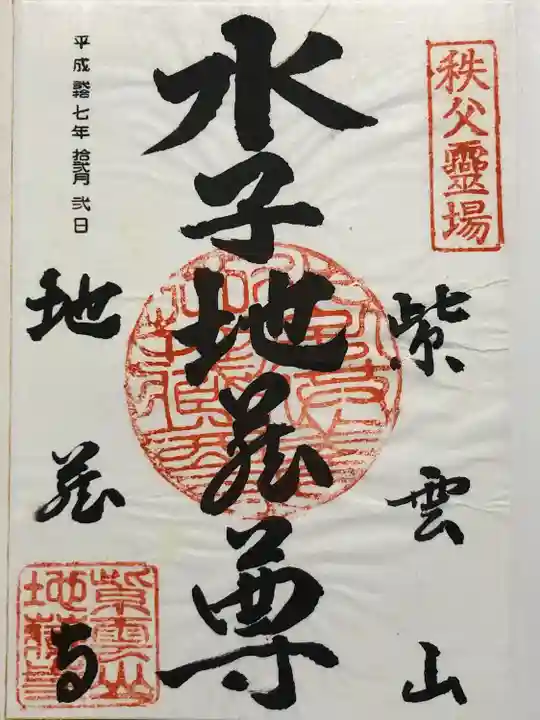 秩父靈場
紫雲山
水子地蔵尊
地蔵寺
平成貮拾七年 拾弐月 弐日
紫雲山
地蔵寺